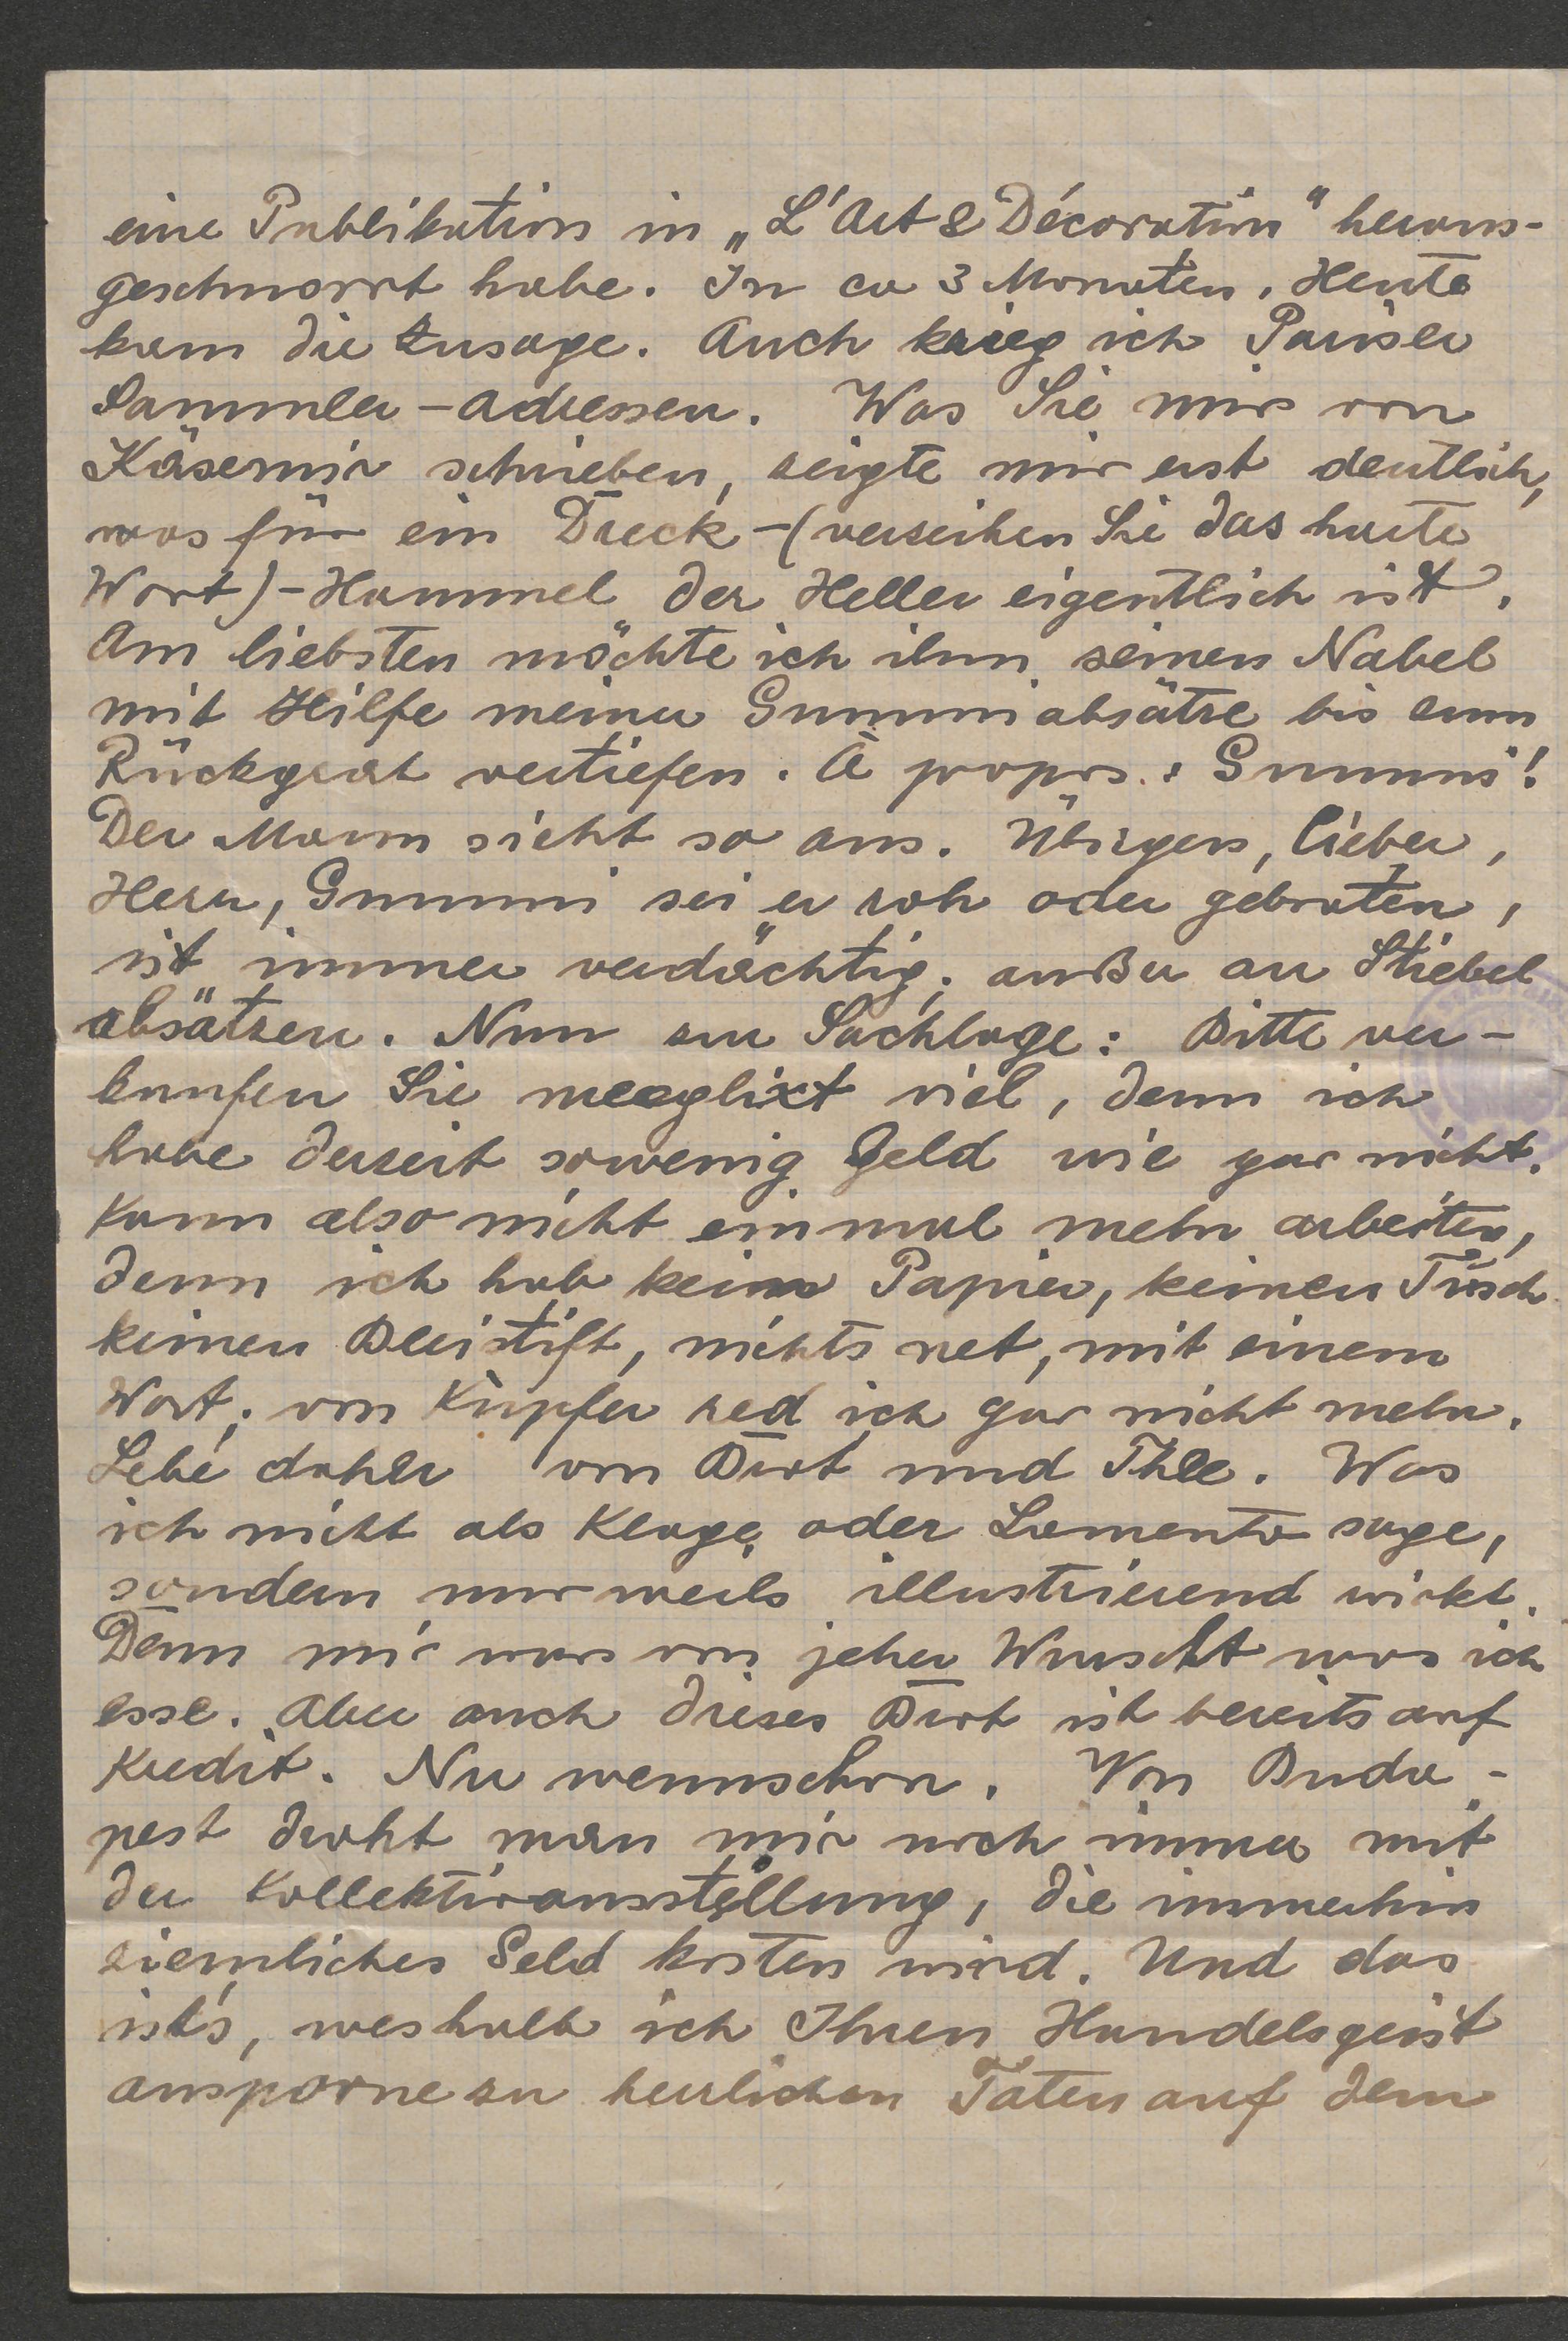 eine Publikation in „L'Art & Décoration" heraus-
geschnorrt habe. In ca 3 Monaten. Heute
kam die Zusage. Auch krieg ich Pariser
Sammler-Adressen. Was Sie mir von
Käsemir schrieben, zeigte mir erst deutlich,
was für ein Dreck-(verzeihen Sie das harte
Wort)-Hammel der Heller eigentlich ist.
Am liebsten möchte ich ihm seinen Nabel
mit Hilfe meiner Gummiabsätze bis zum
Rückgrat vertiefen. À propos: Gummi!
Der Mann sieht so aus. Übrigens, lieber,
Herr, Gummi sei er roh oder gebraten,
ist immer verdächtig; außer an Stiebel
absätzen. Nun zur Sachlage: Bitte ver-
kaufen Sie meeglixt viel, denn ich
habe derzeit sowenig Geld wie gar nicht.
Kann also nicht einmal mehr arbeiten,
denn ich hab kein Papier, keinen Tusch
keinen Bleistift, nichts net, mit einem
Wort; von Kupfer red ich gar nicht mehr.
Lebe daher von Brot und Thee. Was
ich nicht als Klage oder Lamento sage,
sondern nur weils illustrierend wirkt.
Denn mir wars von jeher Wurscht was ich
esse. Aber auch dieses Brot ist bereits auf
Kredit. Nu wennschon. Von Buda-
pest droht man mir noch immer mit
der Kollektivausstellung, die immerhin
ziemliches Geld kosten wird. Und das
ist's, weshalb ich Ihren Handelsgeist
ansporne zu herrlichen Taten auf dem